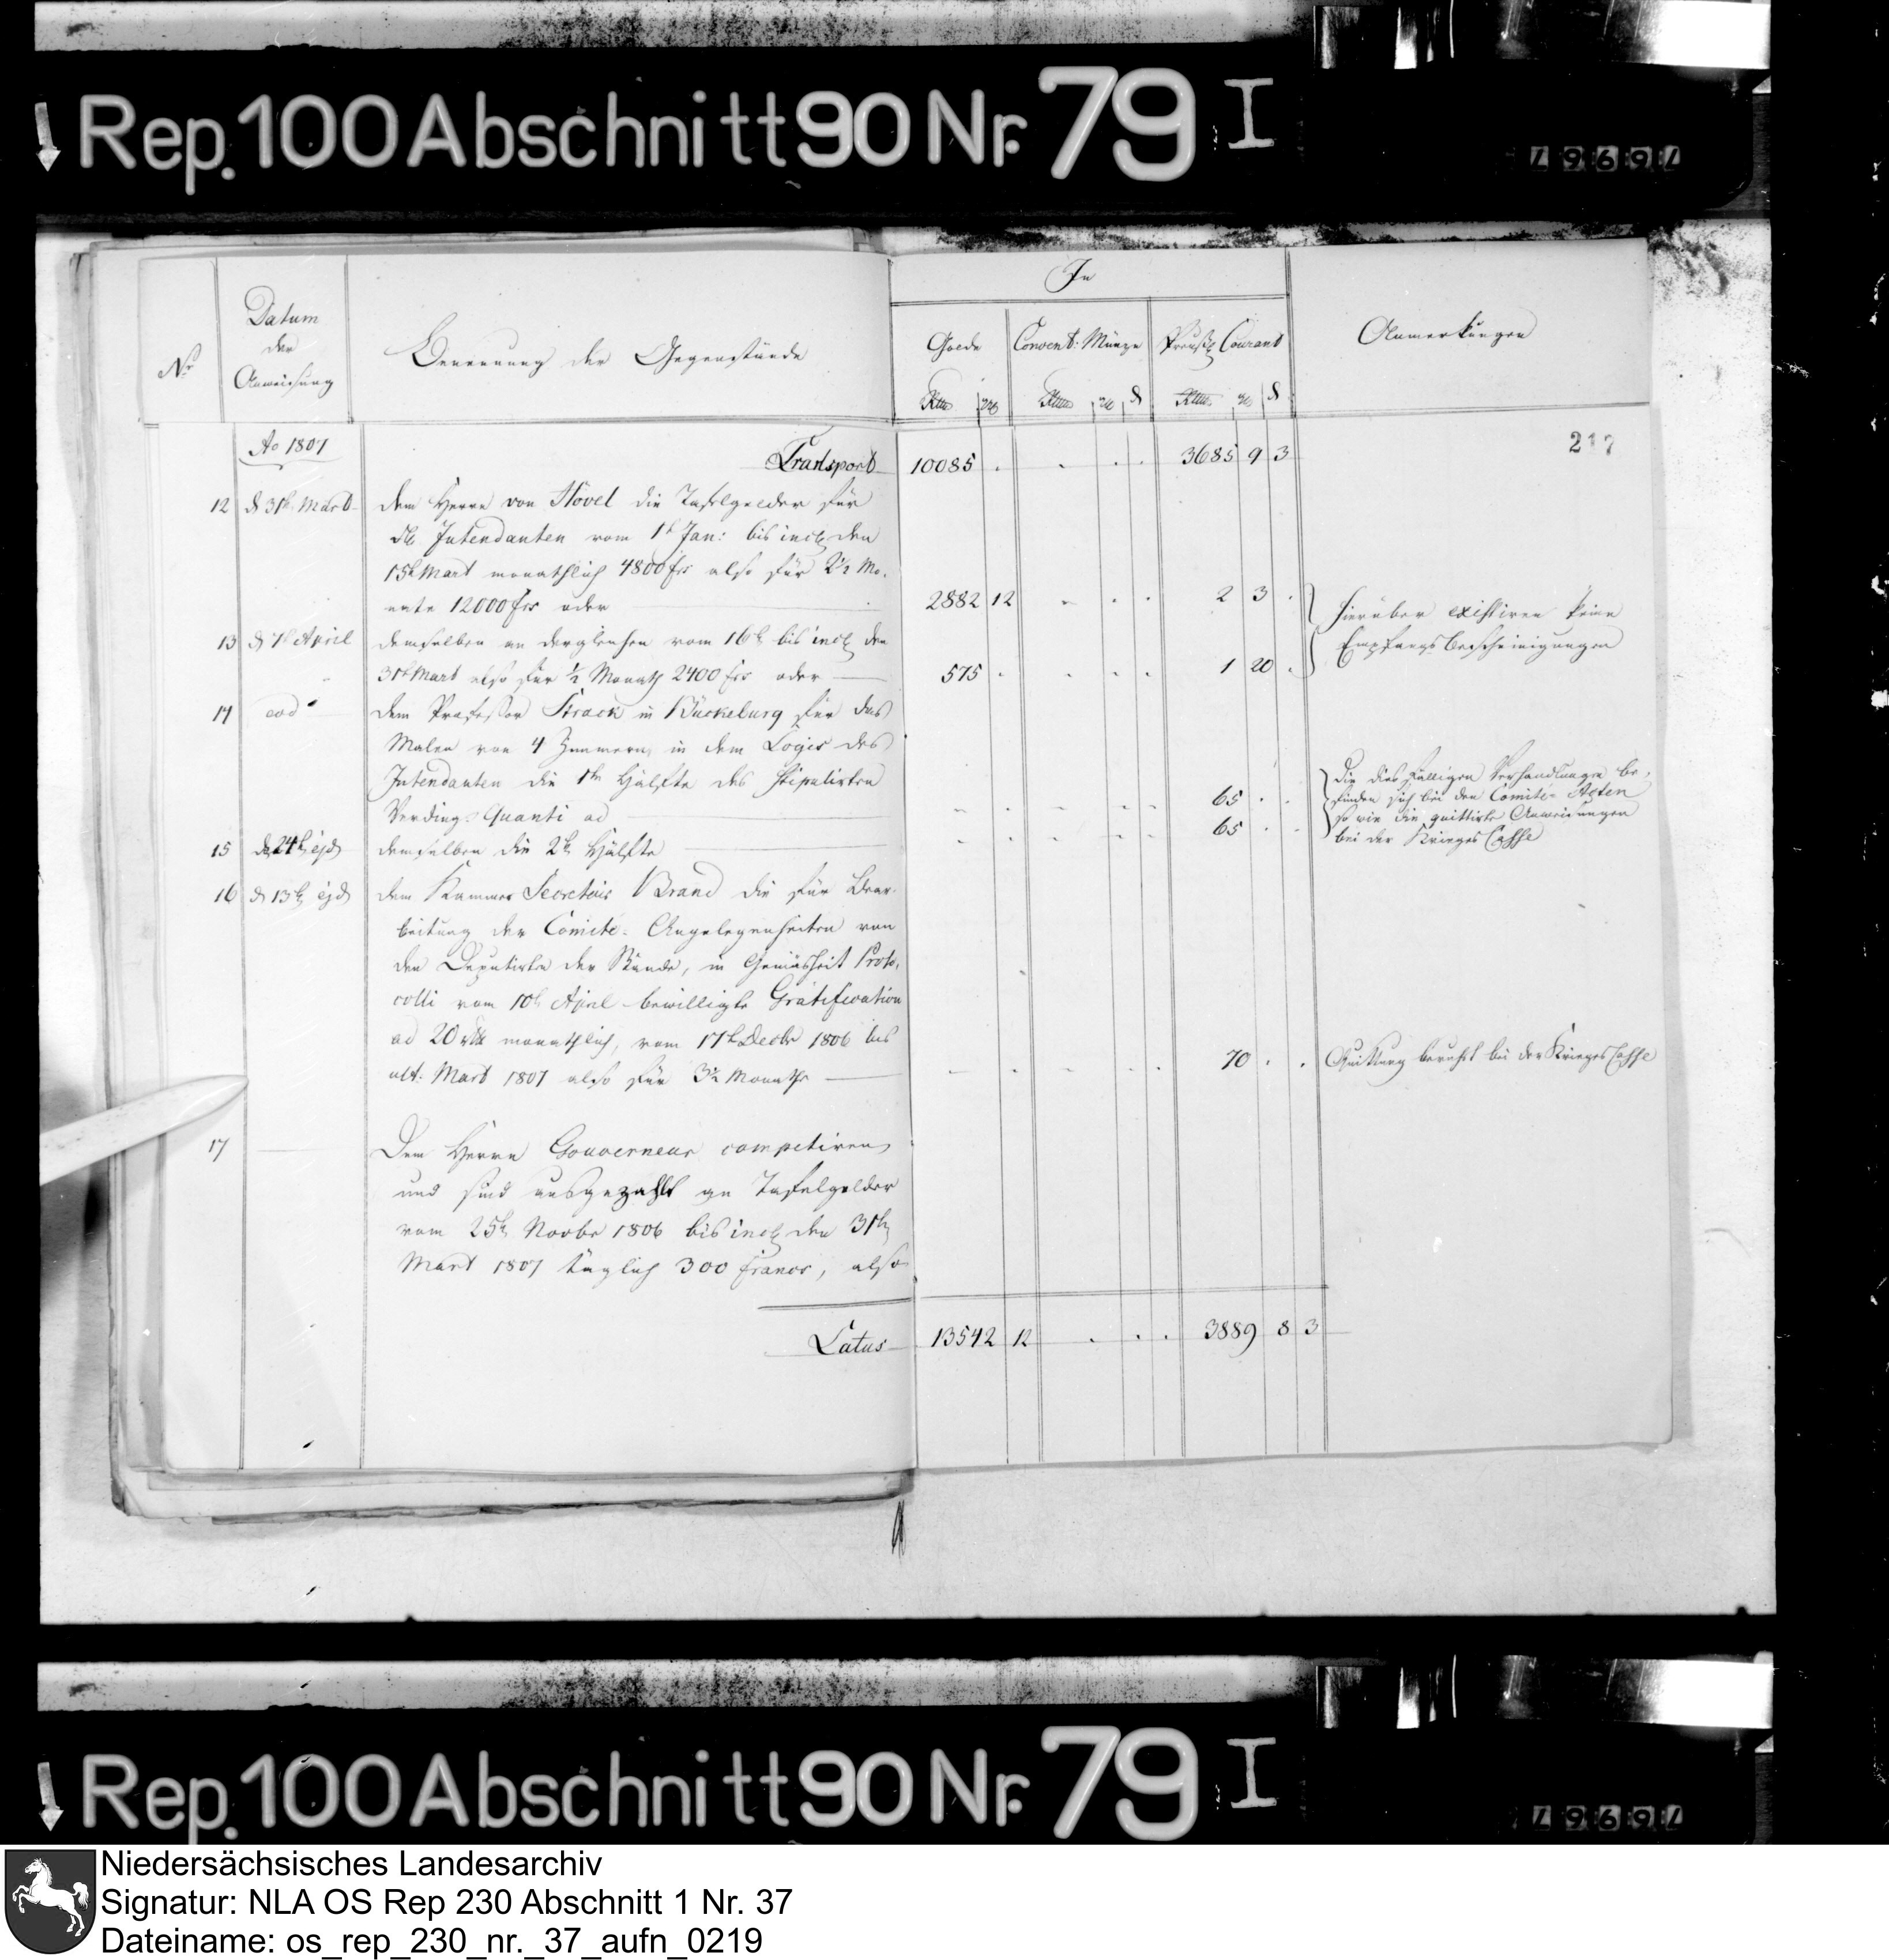 Rep. 100 Abschnitt 90 Nr. 79 I
76967
In
Nr
Datum
der
Anweisung
Benennung der Gegenstände
Golde
Convent: Münze
Preuß. Courant
Anmerkungen
217
Ao 1807
Transport 10085 . . . . 3685 9 3
12 d 31t Mart dem Herrn von Hövel die Tafelgelder für
Intendanten vom 1t Jan: bis incl. den
15t Mart monathlich 4800 frs also für 2½ Mo-
nate 12000 frs oder 2882 12 . . . 2 3 .
13 d 1t April demselben an dergleichen vom 16t bis incl. den
31t Mart also für ½ Monath 2400 frs oder 575 . . . . 1 20 .
Hierüber existiren keine
Empfangs Bescheinigungen
14 eod dem Professor Strack in Bückeburg für das
Malen von 4 Zimmern in dem Logis des
Intendanten die 1te Hälfte des stipulirten
Verdings Quanti ad . . . . . 65 . .
15 d 24t ejd demselben die 2te Hälfte . . . . . 65 . .
Die dies fälligen Verhandlungen be-
finden sich bei den Comité-Acten
so wie die quittirte Anweisungen
bei der Krieges Casse
16 d 13t ejd dem Kammer Secretair Brand die für Bear-
beitung der Comité-Angelegenheiten von
den Deputirten der Stände, in Gemäsheit Proto-
colli vom 10t April bewilligte Gratification
ad 20 rtlr monathlich, vom 17t Decbr 1806 bis
ult. Mart 1807 also für 3½ Monathe . . . . . 70 . .
Quittung beruhet bei der Krieges Casse
17 Dem Herrn Gouverneur competiren
und sind ausgezahlt an Tafelgelder
vom 25t Novbr 1806 bis incl. den 31t
Mart 1807 täglich 300 francs, also
Latus 13542 12 . . . 3889 8 3
Rep. 100 Abschnitt 90 Nr. 79 I
76967
Niedersächsisches Landesarchiv
Signatur: NLA OS Rep 230 Abschnitt 1 Nr. 37
Dateiname: os_rep_230_nr._37_aufn_0219